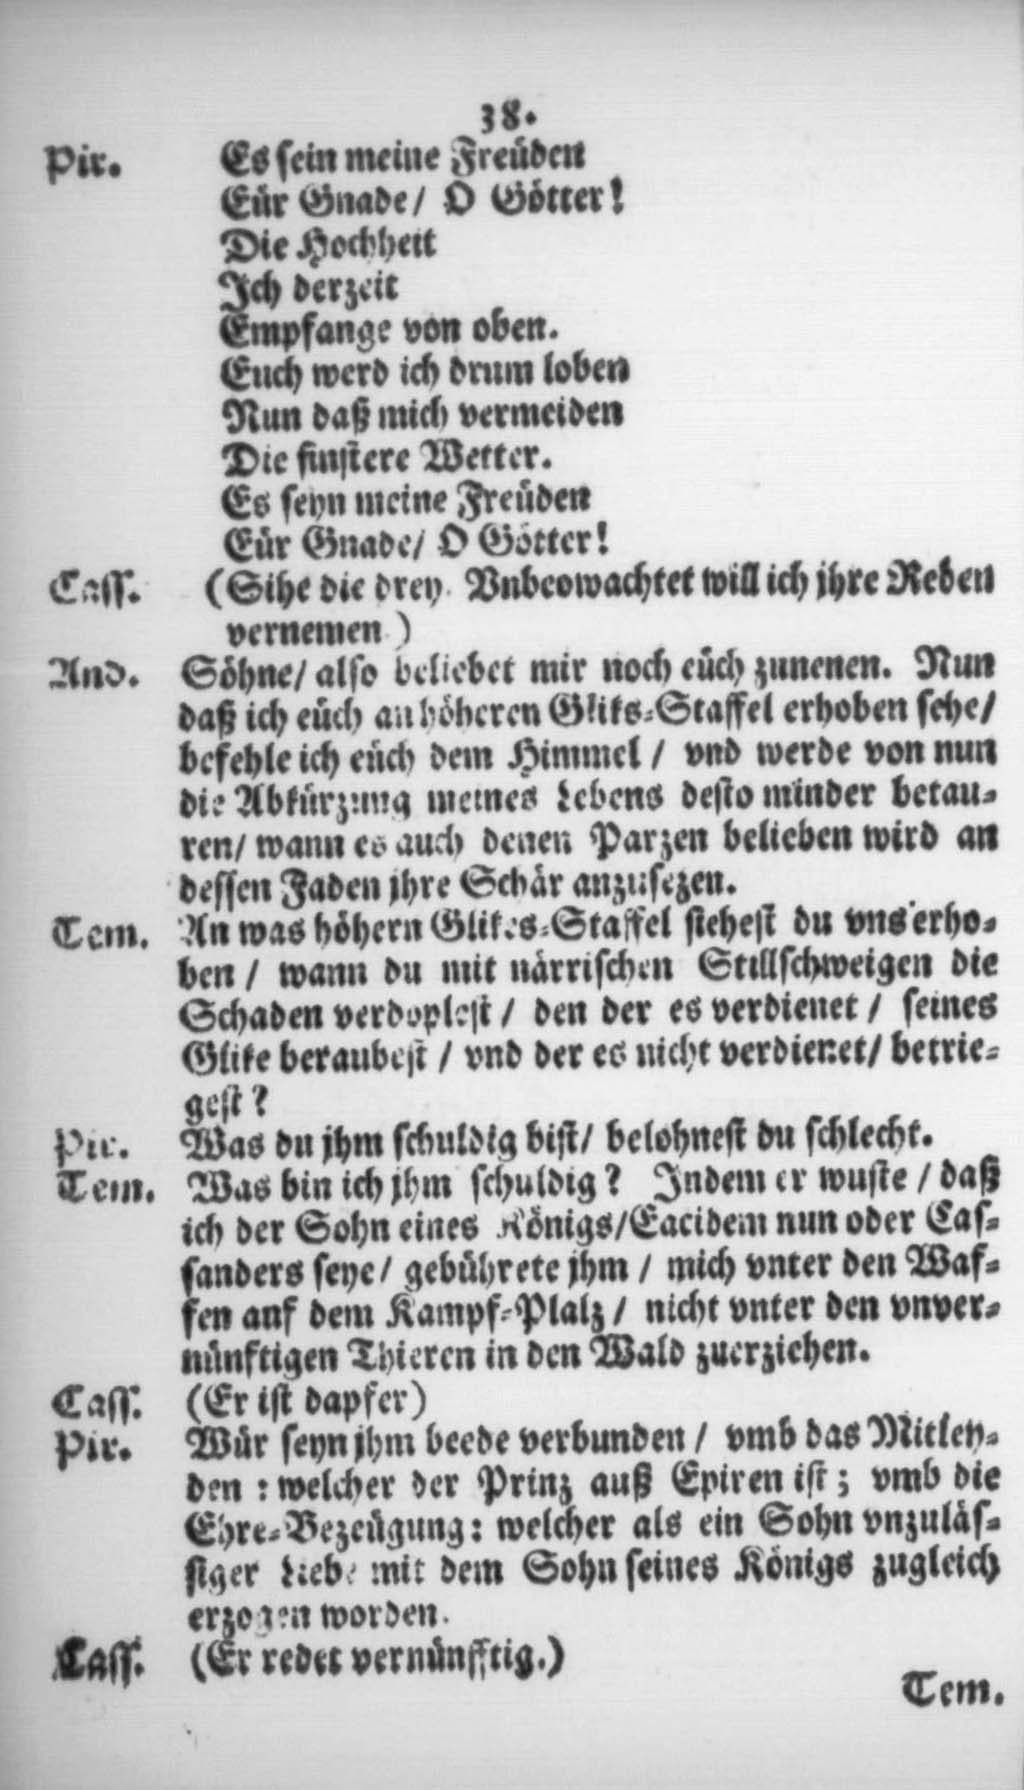 38.
Pir. Es sein meine Freüden
Eür Gnade/ O Götter!
Die Hochheit
Ich derzeit
Empfange von oben.
Euch werd ich drum loben
Nun daß mich vermeiden
Die finstere Wetter.
Es seyn meine Freüden
Eür Gnade/ O Götter!
Cass. (Sihe die drey. Vnbeowachtet will ich jhre Reden
vernemen.)
And. Söhne/ also beliebet mir noch eüch zunenen. Nun
daß ich eüch an höheren Gliks-Staffel erhoben sehe/
befehle ich eüch dem Himmel / vnd werde von nun
die Abkürzung meines Lebens desto minder betau-
ren/ wann es auch denen Parzen belieben wird an
dessen Faden jhre Schär anzusezen.
Tem. An was höhern Glikes-Staffel siehest du vns erho-
ben / wann du mit närrischen Stillschweigen die
Schaden verdoplest / den der es verdienet / seines
Glike beraubest / vnd der es nicht verdienet/ betrie-
gest?
Pir. Was du jhm schuldig bist/ belohnest du schlecht.
Tem. Was bin ich jhm schuldig? Indem er wuste / daß
ich der Sohn eines Königs/Eacidem nun oder Cas-
sanders seye/ gebührete jhm / mich vnter den Waf-
fen auf dem Kampf-Plalz / nicht vnter den vnver-
nünftigen Thieren in den Wald zuerziehen.
Cass. (Er ist dapfer)
Pir. Wür seyn jhm beede verbunden / vmb das Mitley-
den : welcher der Prinz auß Epiren ist; vmb die
Ehre-Bezeügung: welcher als ein Sohn vnzuläs-
siger Liebe mit dem Sohn seines Königs zugleich
erzogen worden.
Cass. (Er redet vernünfftig.)
Tem.